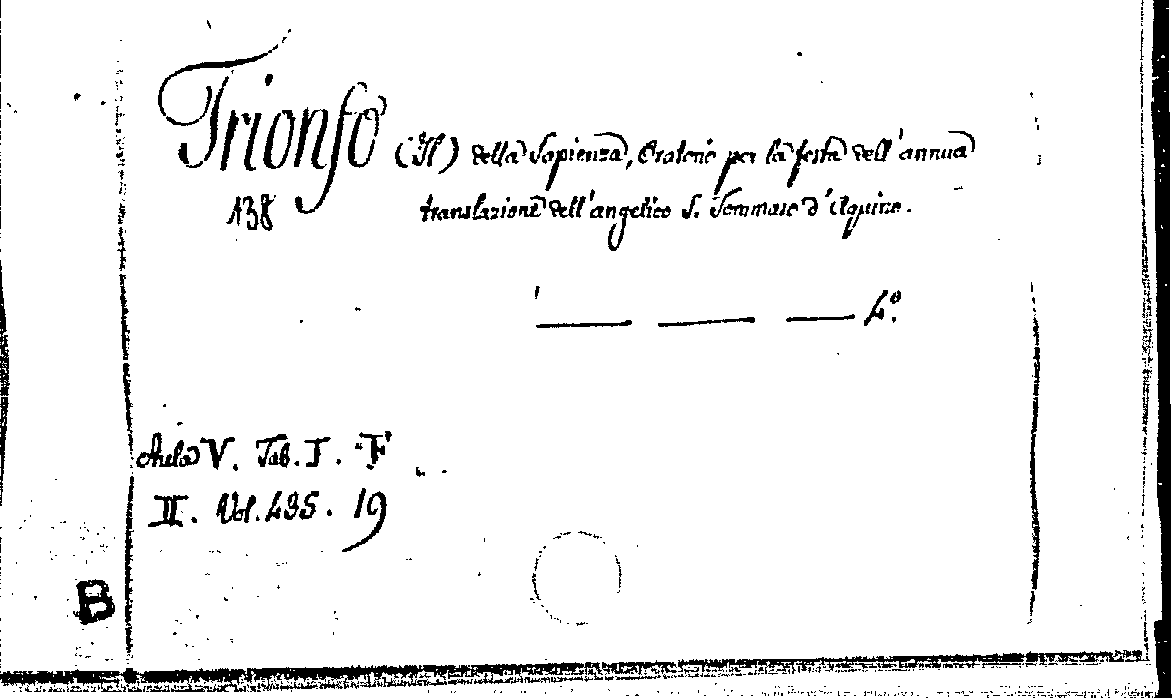 Trionfo (Il) della Sapienza, Oratorio per la festa dell'annua
138 translazione dell'angelico S. Tommaso d'Aquino.
— — — 4.º
Aula V. Tab. I. F
II. Vol. 435. 19
B